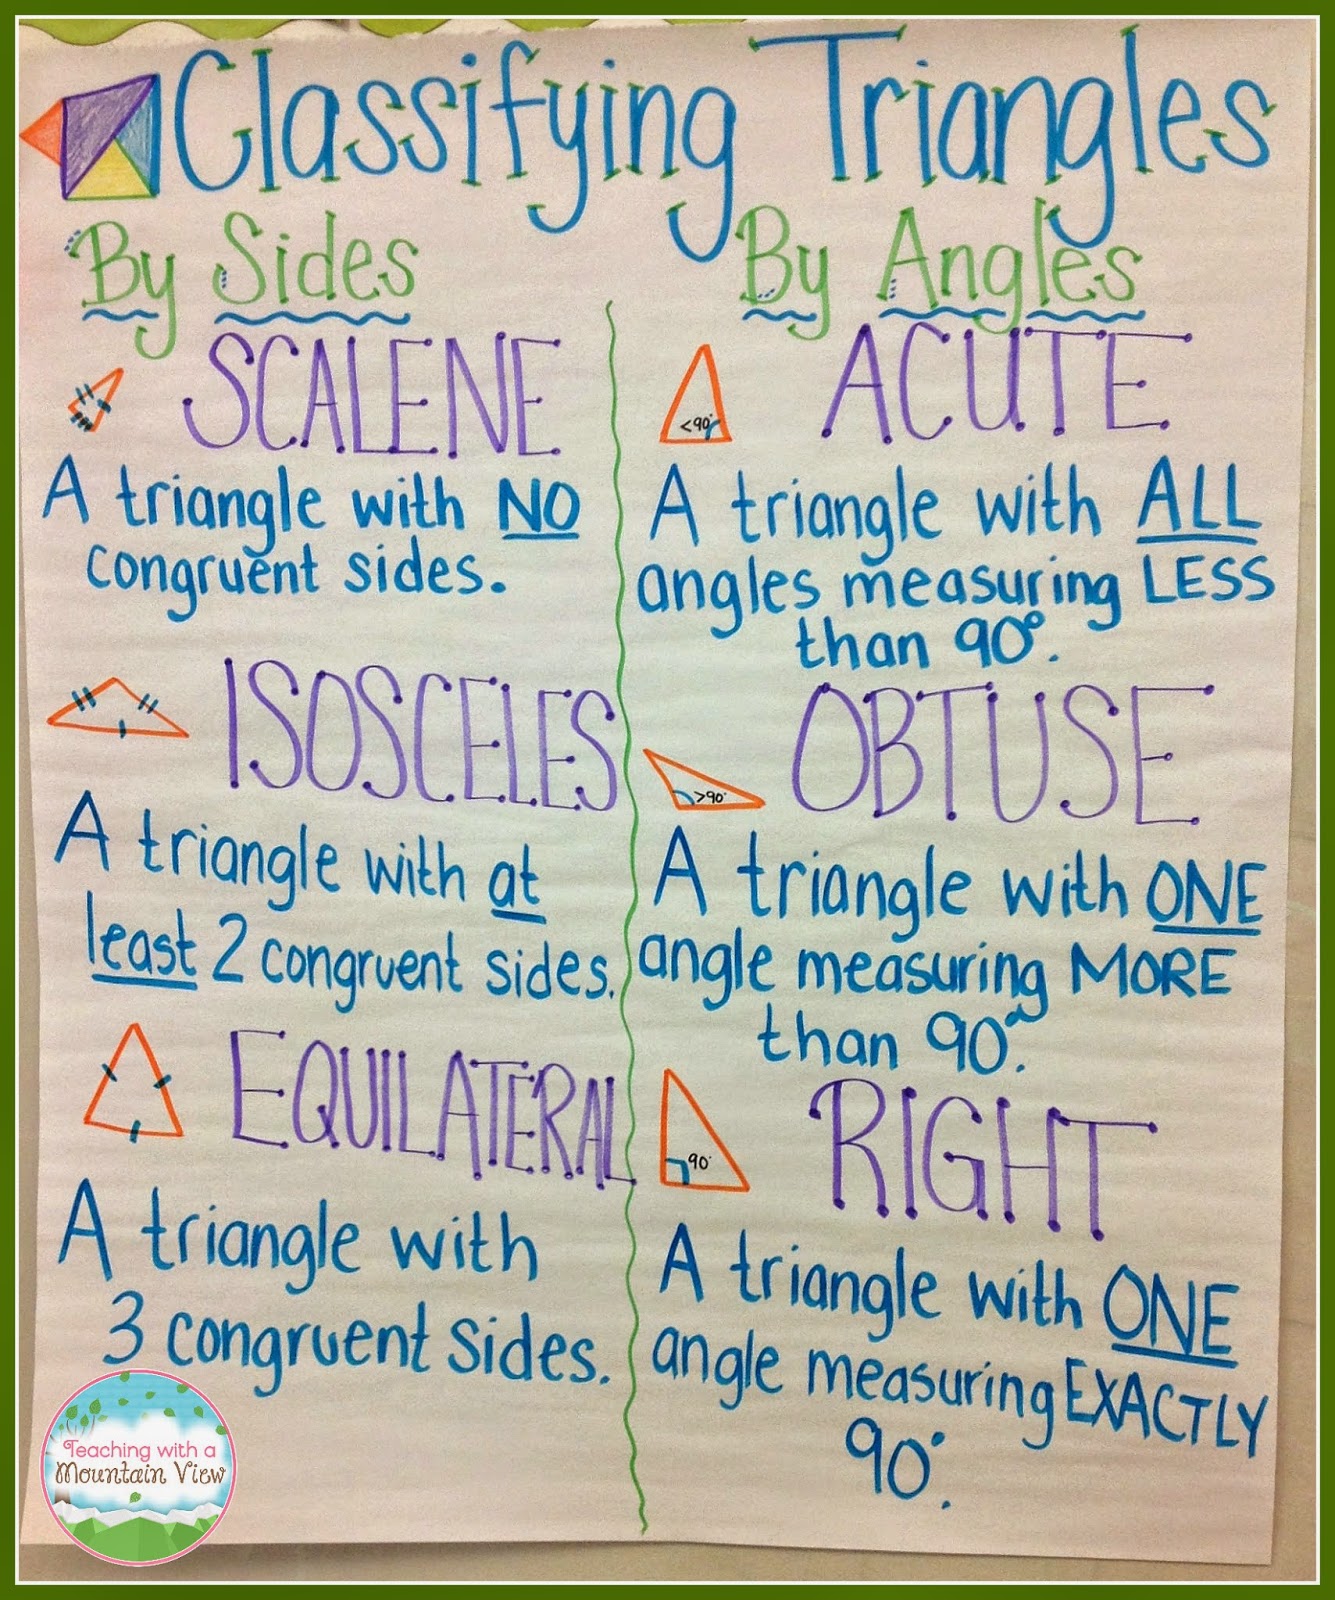 Classifying Triangles
By Sides
SCALENE
A triangle with NO
congruent sides.
ISOSCELES
A triangle with at
least 2 congruent sides.
EQUILATERAL
A triangle with
3 congruent sides.
By Angles
<90°
ACUTE
A triangle with ALL
angles measuring LESS
than 90°.
>90°
OBTUSE
A triangle with ONE
angle measuring MORE
than 90°.
90°
RIGHT
A triangle with ONE
angle measuring EXACTLY
90°.
Teaching with a
Mountain View